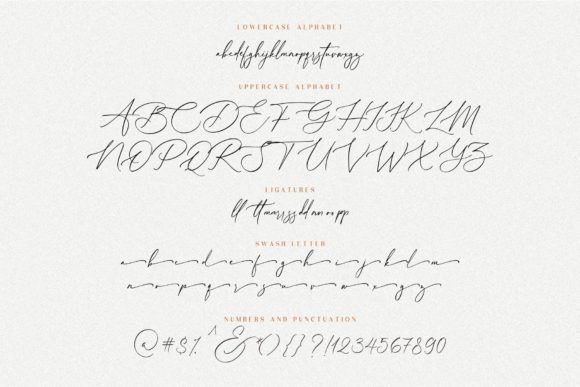 LOWERCASE ALPHABET
abcdefghijklmnopqrstuvwxyz
UPPERCASE ALPHABET
ABCDEFGHIJKLM
NOPQRSTUVWXYZ
LIGATURES
ll tt mm rr ss dd nn oo pp
SWASH LETTER
a b c d e f g h i j k l m
n o p q r s u v w x y z
NUMBERS AND PUNCTUATION
@#$%^&*(){}?!1234567890